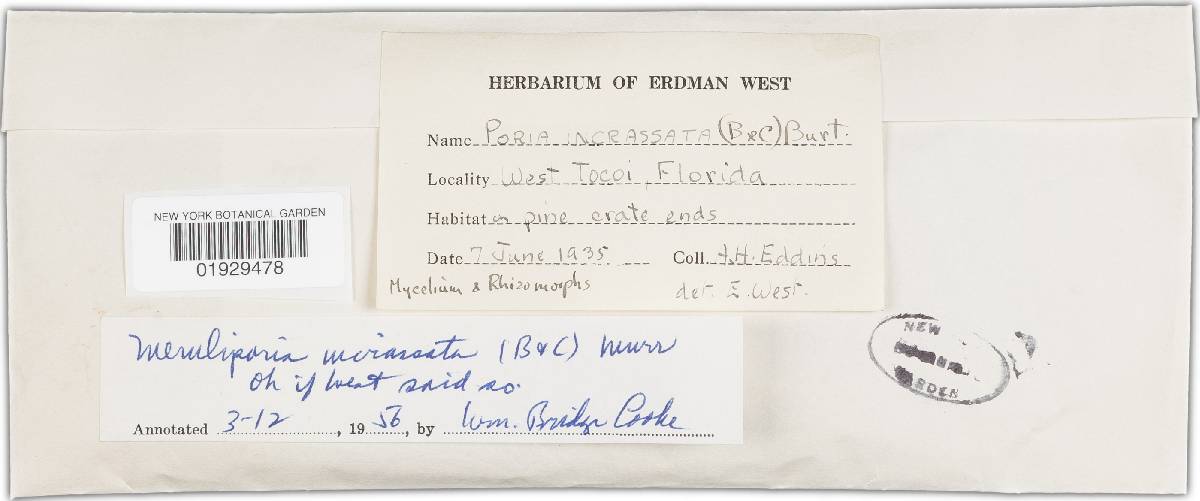 HERBARIUM OF ERDMAN WEST
Name PORIA INCRASSATA (B&C) Burt.
Locality West Tocoi, Florida
Habitat on pine crate ends
Date 7 June 1935 Coll. A.H. Eddins
Mycelium & Rhizomorphs det. E. West.
NEW YORK BOTANICAL GARDEN
01929478
Meruliporia incrassata (B&C) Murr
Oh if West said so.
Annotated 3-12, 1956, by Wm. Bridge Cooke
NEW
GARDEN